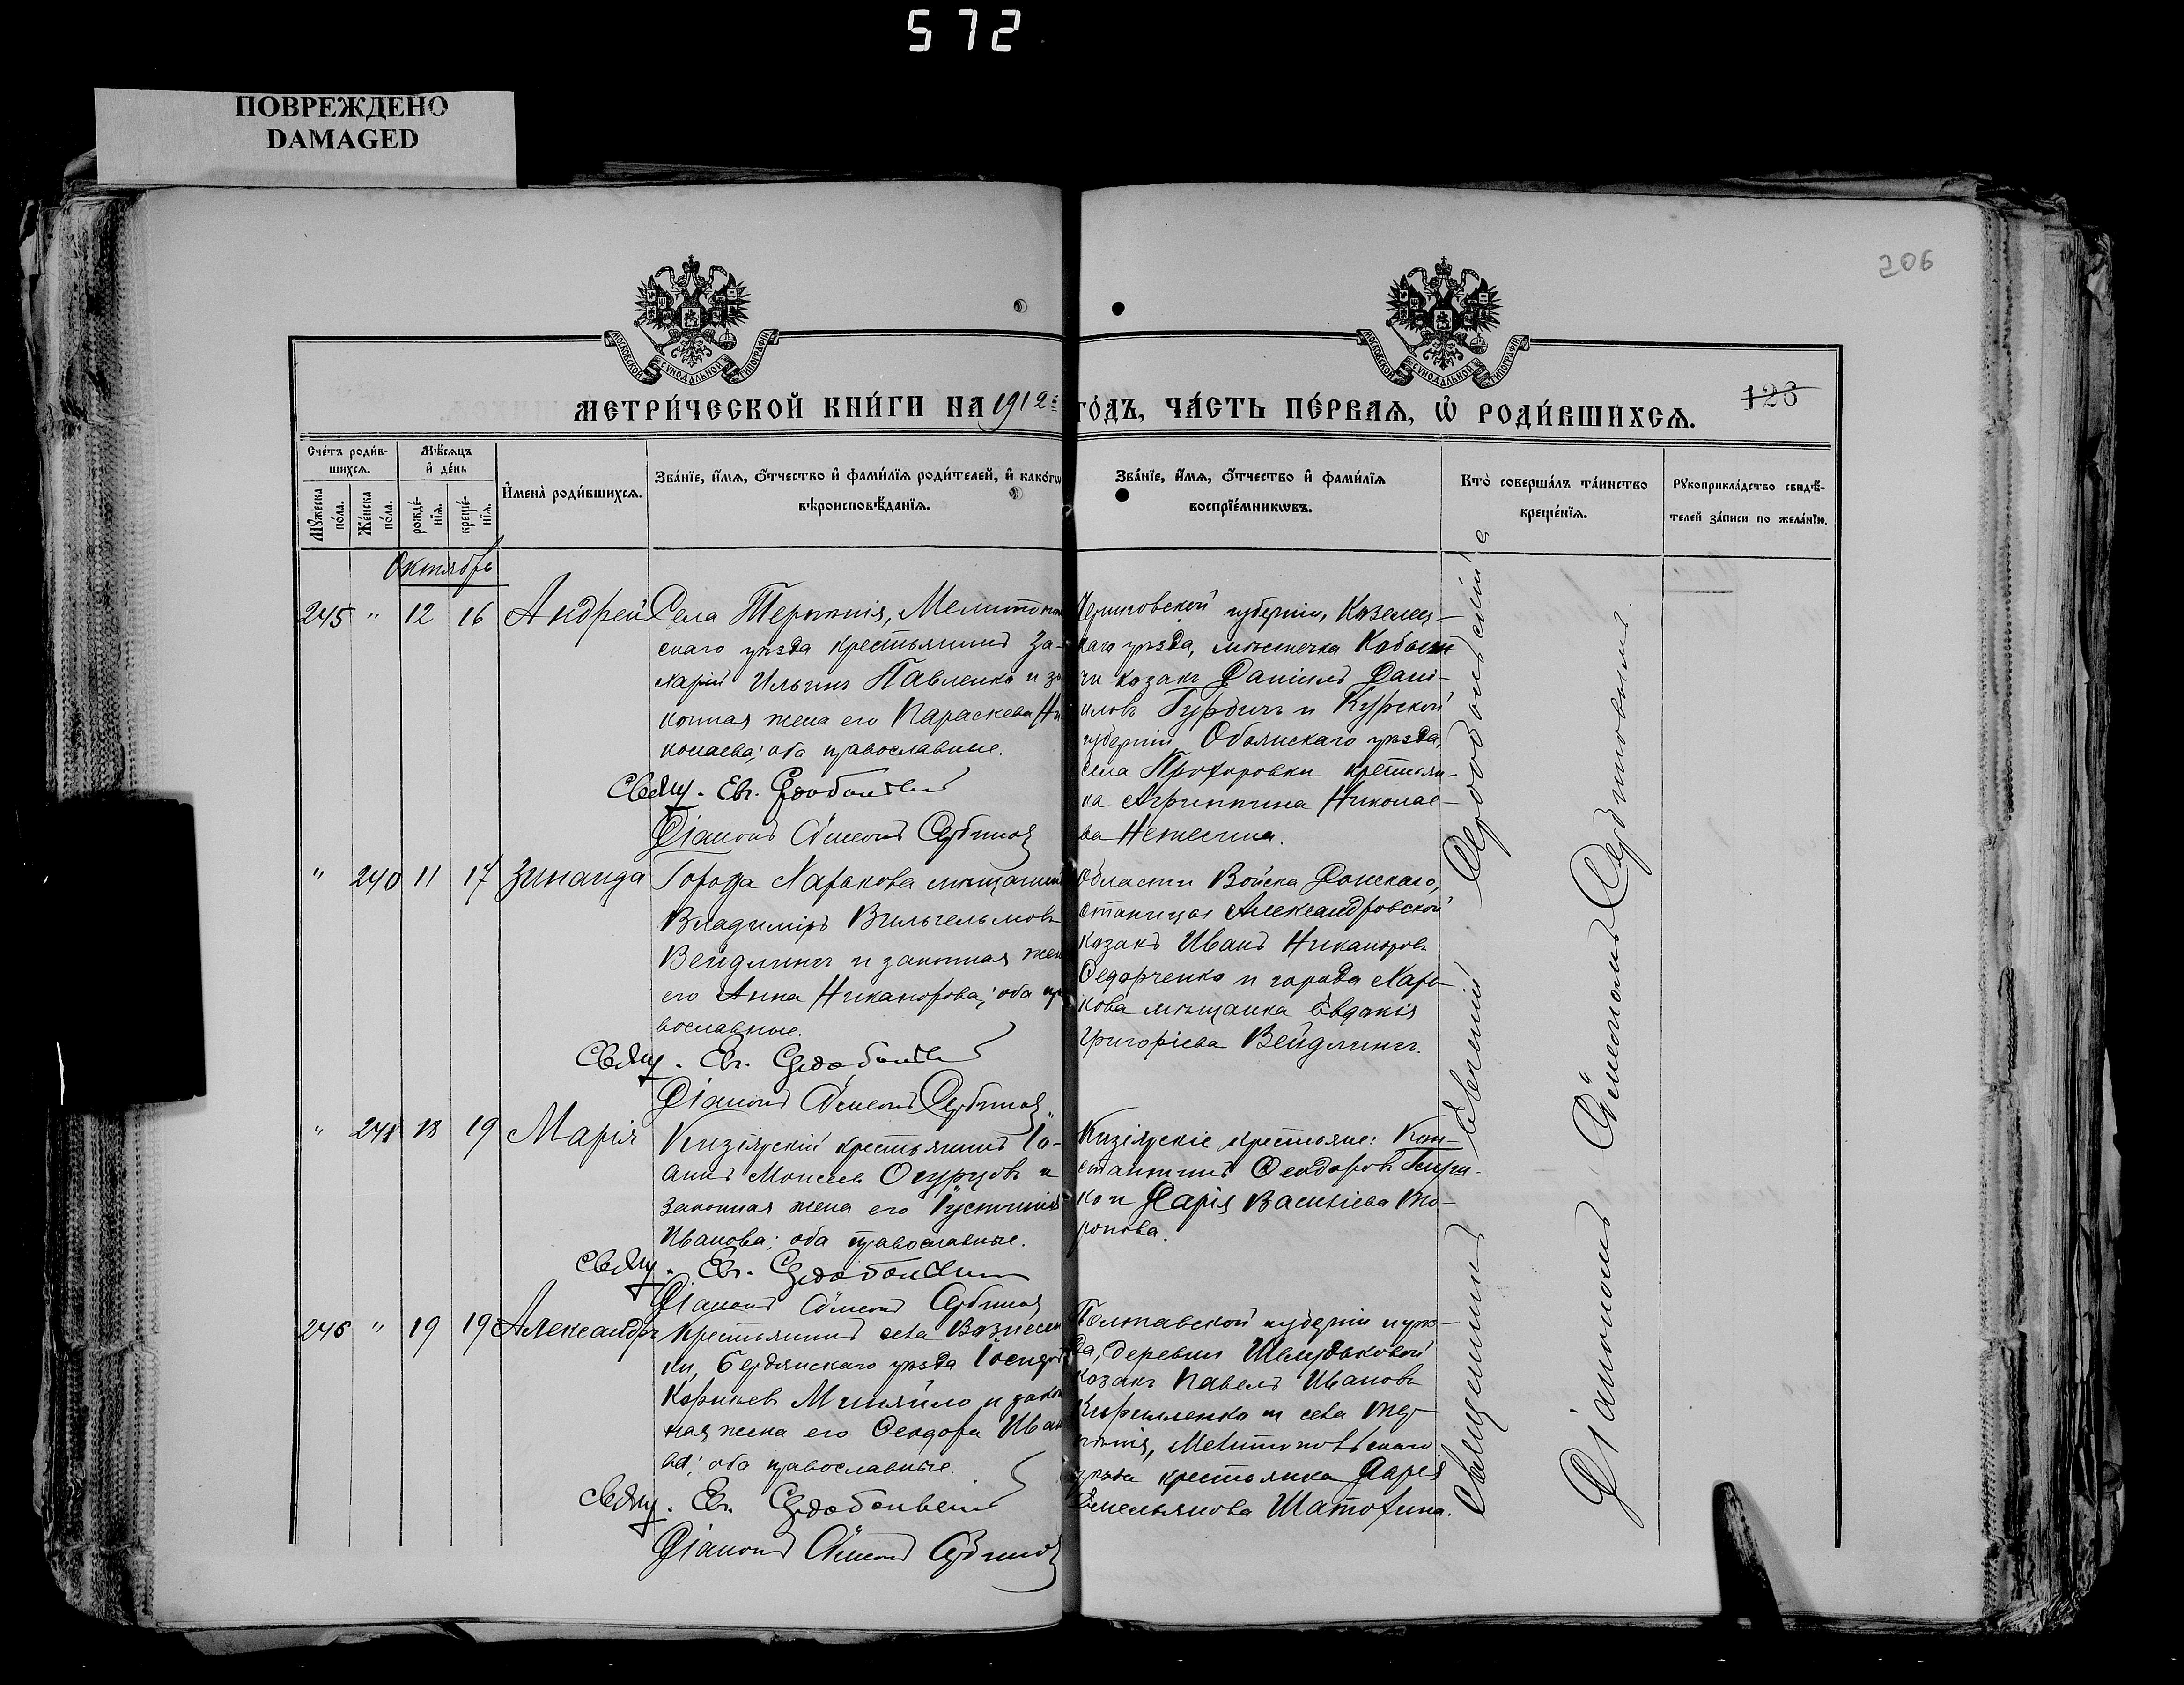 572
ПОВРЕЖДЕНО
DAMAGED
206
МОСКОВСКОЙ СѴНОДАЛЬНОЙ ТИПОГРАФІИ
МОСКОВСКОЙ СѴНОДАЛЬНОЙ ТИПОГРАФІИ
МЕТРИ́ЧЕСКОЙ КНИ́ГИ НА 1912
ГО́ДЪ, ЧА́СТЬ ПЕ́РВАѦ, Ѡ҆ РОДИ́ВШИХСѦ.
123
Сче́тъ роди́в-
шихсѧ.
Мѣ́сѧцъ
и҆ де́нь
Мꙋ́жеска
по́ла.
Же́нска
по́ла.
рожде́-
нїѧ.
креще́-
нїѧ.
И҆мена̀ роди́вшихсѧ.
Зва́нїе, и҆́мѧ, ѻ҆́тчество и҆ фами́лїѧ роди́телей, и҆ како́гѡ
вѣроисповѣ́данїѧ.
Зва́нїе, и҆́мѧ, ѻ҆́тчество и҆ фами́лїѧ
воспрїе́мникѡвъ.
Кто̀ соверша́лъ та́инство
креще́нїѧ.
Рꙋкоприкла́дство свидѣ́-
телей за́писи по жела́нїю.
Октябрь
245 " 12 16 Андрей
Села Терпѣнія, Мелитополь
скаго уѣзда крестьянинъ За-
харій Ильинъ Павленко и за
конная жена его Параскева Ни
колаева; оба православные.
Свящ. Ев.
Діаконъ Сѵмеонъ Сербиновъ
Черниговской губерніи, Козелец-
каго уѣзда, мѣстечка Кобыж
чи козакъ Даніилъ Дані-
иловъ Гурбичъ и Курской
губерніи Обоянскаго уѣзда,
села Прохоровки крестьян-
ка Агриппина Николае-
ва
" 240 11 17 Зинаида
Города Харькова мѣщанинъ
Владиміръ Вильгельмовъ
Вейдлингъ и законная жена
его Анна Никанорова; оба пра
вославные.
Свящ. Ев.
Діаконъ Сѵмеонъ Сербиновъ
Области Войска Донскаго,
станицы Александровской
козакъ Иванъ Никаноровъ
Ѳедорченко и города Харь-
кова мѣщанка Евдокія
Григоріева Вейдлингъ.
" 241 18 19 Марія
Кизіярскій крестьянинъ Іо-
аннъ Моисеевъ Огурцовъ и
законная жена его Іустинія
Иванова; оба православные.
Свящ. Ев.
Діаконъ Сѵмеонъ Сербиновъ
Кизіярскіе крестьяне: Кон-
стантинъ Ѳеодоровъ
ко и Дарія Васильева То-
ропова.
246 " 19 19 Александръ
Крестьянинъ села Вознесен
ки, Бердянскаго уѣзда Іосифъ
Корнѣевъ Миняйло и закон
ная жена его Ѳеодора Ивано
ва; оба православные.
Свящ. Ев.
Діаконъ Сѵмеонъ Сербиновъ
Полтавской губерніи и уѣз-
да, деревни Шелудьковой
козакъ Павелъ Ивановъ
Кириленко и села Тер-
пѣнія, Мелитопольскаго
уѣзда крестьянка Дарія
Емельянова Шатохина.
Священникъ Евгеній
Діакономъ Сѵмеономъ Сербиновымъ.